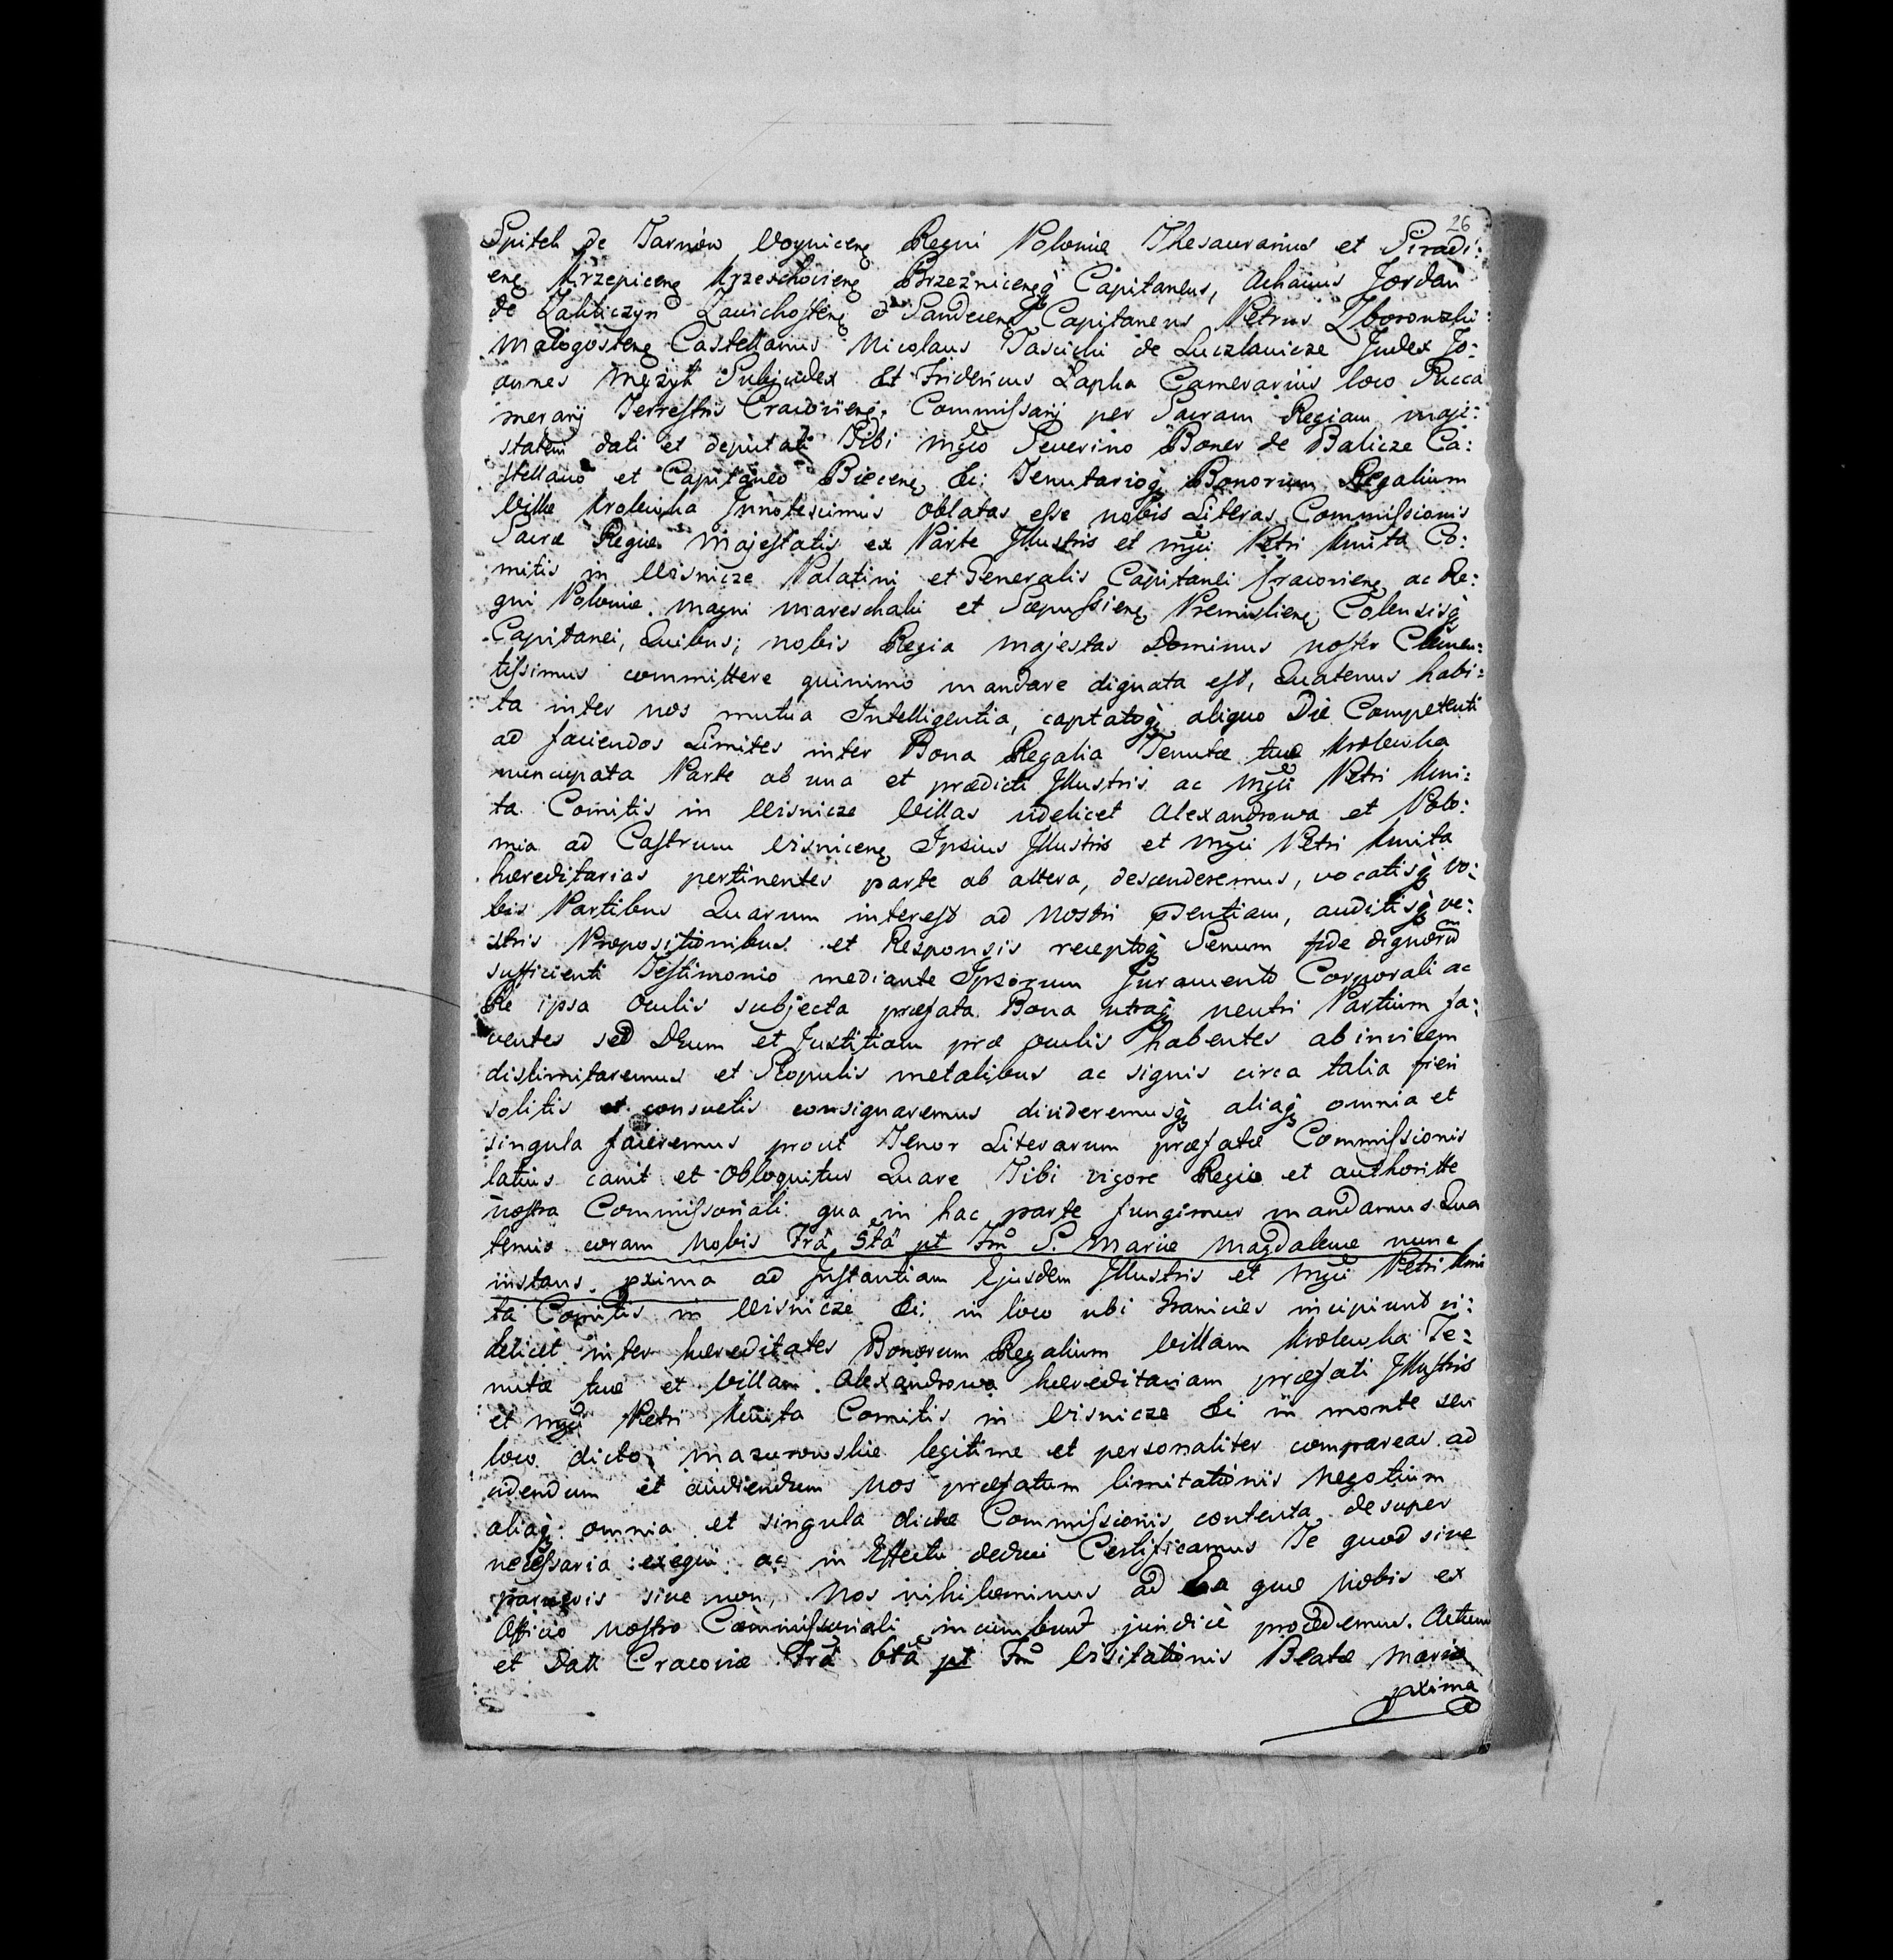 26
Spitek de Tarnow Voyniceng Regni Poloniæ Thesaurarius et Siradi:
eng Krzepiceng Krzeschovieng Brzeźnicengq Capitaneus, Achacius Jordan
de Zakliczyn Zavichosteng et Sandeceng Capitaneus Petrus Zborowski
Małogosteng Castellanus Nicolaus Tascicki de Luczlawicze Judex Jo:
annes Mężyk Subjudex Et Fridericus Łapka Camerarius loco Succa
merarij Terrestris Cracovieng. Commissarij per Sacram Regiam maje:
statem dati et deputati Tibi mgco Severino Boner de Balicze Ca:
stellano et Capitaneo Bieceng &c: Tenutarioq Bonorum Regalium
Villæ Krolewka Innotescimus oblatas esse nobis Literas Commissionis
Sacræ Regiæ Majestatis ex Parte Illustris et mgci Petri Kmita Co:
mitis in Wisnicze Palatini et Generalis Capitanei Cracovieng ac Re:
gni Poloniæ magni Mareschalci et Scepusieng Premislieng Colensisq
Capitanei, Quibus; nobis Regia Majestas Dominus noster Clemen:
tissimus committere quinimo mandare dignata est, Quatenus habi:
ta inter nos mutua Intelligentia, captatoq aliquo Die Competenti
ad faciendos Limites inter Bona Regalia Tenutæ tuæ Krolewka
nuncupata Parte ab una et prædicti Illustris ac mgci Petri Kmi:
ta Comitis in Wisnicze Villas videlicet Alexandrowa et Poto:
mia ad Castrum Visniceng Ipsius Illustris et mgci Petri Kmita
hæreditarias pertinentes parte ab altera, descenderemus, vocatisq vo:
bis Partibus Quarum interest ad nostri psentiam, auditisq ve:
stris Propositionibus et Responsis receptoq Senum fide dignorum
sufficienti Testimonio mediante Ipsorum Juramento Corporali ac
Re ipsa Oculis subjecta præfata Bona utraq neutri Partium fa:
ventes sed Deum et Justitiam præ oculis habentes ab invicem
dislimitaremus et Scopulis metalibus ac signis circa talia fieri
solitis et consuetis consignaremus divideremusq aliaq omnia et
singula faceremus prout Tenor Literarum præfatæ Commissionis
latius canit et Obloquitur Quare Tibi vigore Regio et authoritte
nostra Commissoriali qua in hac parte fungimur mandamus Qua
tenus coram Nobis Fra 5ta pt Fm S. Mariæ Magdalenæ nunc
instans pxima ad Instantiam Ejusdem Illustris et mgci Petri Kmi
ta Comitis in Wisnicze &c: in loco ubi Granicies incipiunt vi:
delicet inter hæreditates Bonorum Regalium Villam Krolewka Te:
nutæ tuæ et Villam Alexandrowa hæreditariam præfati Illustris
et mgci Petri Kmita Comitis in Visnicze &c in monte seu
loco dicto Mazurowskie legitime et personaliter compareas ad
videndum et audiendum Nos præfatum limitationis Negotium
aliaq omnia et singula dictæ Commissionis contenta desuper
necessaria exequi ac in Effectu deduci Certificamus Te quod sive
parueris sive non, Nos nihilominus ad Ea quæ Nobis ex
Officio nostro Commissoriali incumbunt juridicè procedemus. Actum
et Datt Cracoviæ Fra 6ta pt Fm Visitationis Beatæ Mariæ
pxima